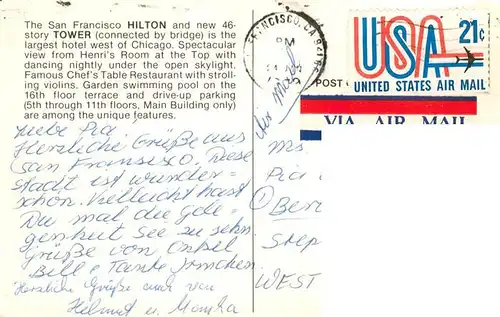 The San Francisco HILTON and new 46-
story TOWER (connected by bridge) is the
largest hotel west of Chicago. Spectacular
view from Henri's Room at the Top with
dancing nightly under the open skylight.
Famous Chef's Table Restaurant with stroll-
ing violins. Garden swimming pool on the
16th floor terrace and drive-up parking
(5th through 11th floors, Main Building only)
are among the unique features.
Liebe Pia
Herzliche Grüße aus
San Fransisco. Diese
Stadt ist wunder-
schön. Vielleicht hast
Du mal die Gele-
genheit See zu sehn
Grüße von Onkel
Bill + Tante Irmchen
Herzliche Grüße auch von
Helmut u. Monika
FRANCISCO, CA
PM
Air Mail
USA 21c
UNITED STATES AIR MAIL
POST
VIA AIR MAIL
Ms.
Pia
1 Ber
Step
WEST